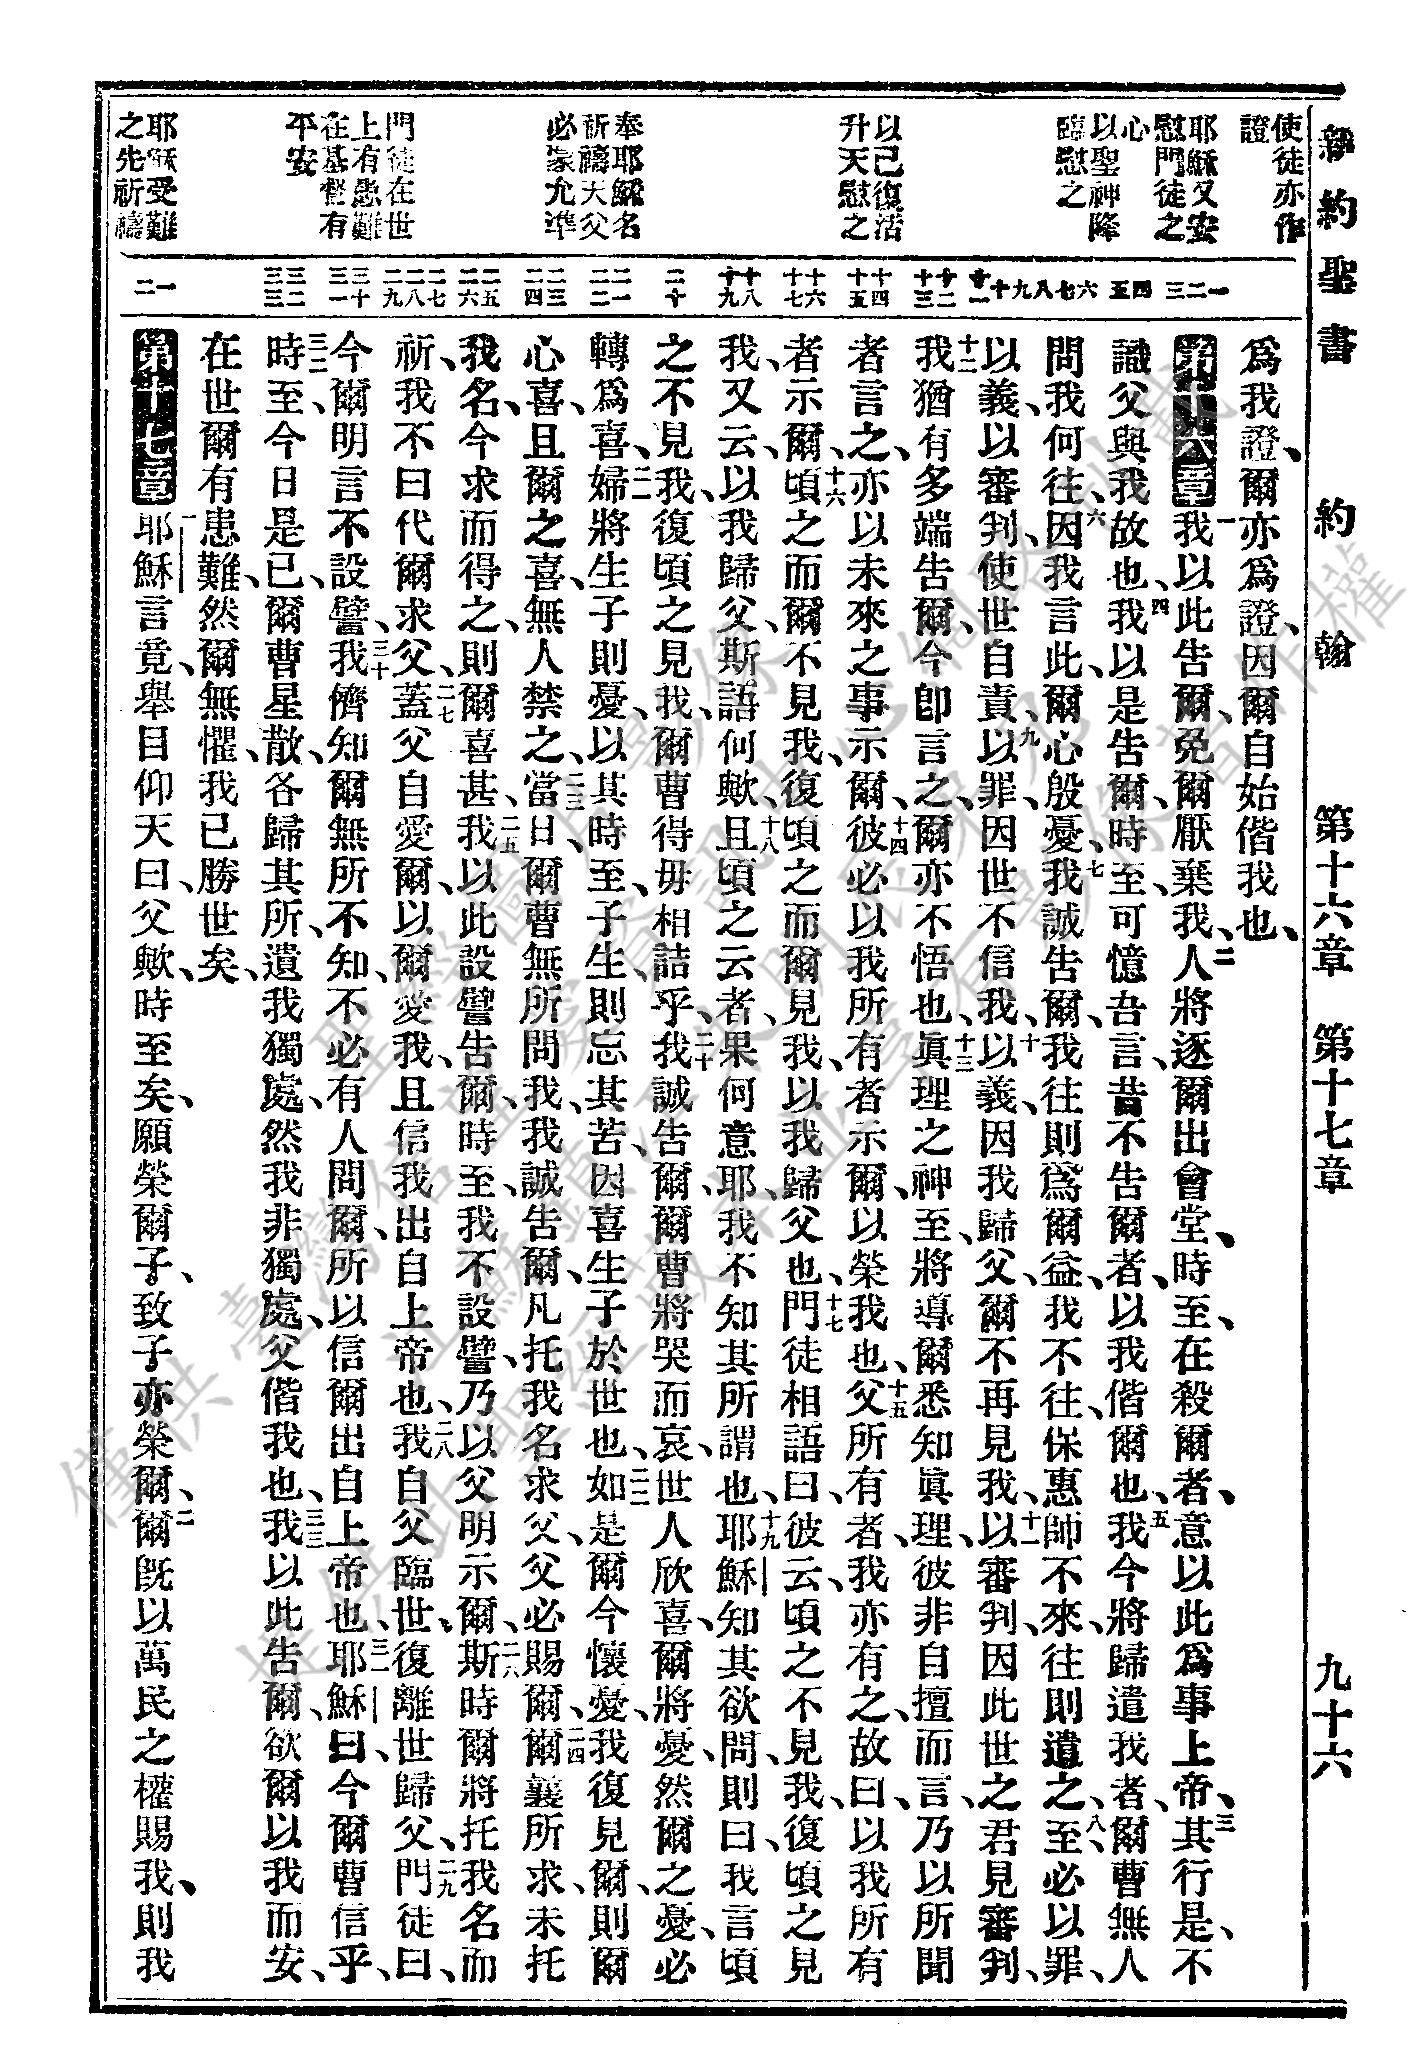 新約聖書 約翰 第十六章 第十七章 九十六
使徒亦作
證
耶穌又安
慰門徒之
心
以聖神降
臨慰之
以己復活
升天慰之
奉耶穌名
祈禱天父
必蒙允准
門徒在世
上有患難
在基督有
平安
耶穌受難
之先祈禱
一二三 四五 六七八九十 十一 十二十三 十四十五 十六十七 十八十九 二十 二一二二 二三二四 二五二六 二七二八二九 三十三一 三二三三 一二
爲我證、爾亦爲證、因爾自始偕我也、
第十六章 一我以此告爾、免爾厭棄我、二人將逐爾出會堂、時至、在殺爾者、意以此爲事上帝、三其行是、不
識父與我故也、四我以是告爾、時至、可憶吾言、昔不告爾者、以我偕爾也、五我今將歸遣我者、爾曹無人
問我何往、六因我言此、爾心殷憂、七我誠告爾、我往則爲爾益、我不往、保惠師不來、往則遣之、八至、必以罪、
以義、以審判、使世自責、九以罪、因世不信我、十以義、因我歸父、爾不再見我、十一以審判、因此世之君見審判、
十二我猶有多端告爾、今卽言之、爾亦不悟也、十三眞理之神至、將導爾悉知眞理、彼非自擅而言、乃以所聞
者言之、亦以未來之事示爾、十四彼必以我所有者示爾、以榮我也、十五父所有者、我亦有之、故曰、以我所有
者示爾、十六頃之而爾不見我、復頃之而爾見我、以我歸父也、十七門徒相語曰、彼云、頃之不見我、復頃之見
我、又云、以我歸父、斯語何歟、十八且頃之云者、果何意耶、我不知其所謂也、十九耶穌知其欲問、則曰、我言頃
之不見我、復頃之見我、爾曹得毋相詰乎、二十我誠告爾、爾曹將哭而哀、世人欣喜、爾將憂、然爾之憂、必
轉爲喜、二一婦將生子則憂、以其時至、子生、則忘其苦、因喜生子於世也、二二如是爾今懷憂、我復見爾、則爾
心喜、且爾之喜、無人禁之、二三當日、爾曹無所問我、我誠告爾、凡托我名求父、父必賜爾、二四爾曩所求、未托
我名、今求而得之、則爾喜甚、二五我以此設譬告爾、時至、我不設譬、乃以父明示爾、二六斯時爾將托我名而
祈、我不曰代爾求父、二七蓋父自愛爾、以爾愛我、且信我出自上帝也、二八我自父臨世、復離世歸父、二九門徒曰、
今爾明言不設譬、三十我儕知爾無所不知、不必有人問爾、所以信爾出自上帝也、三一耶穌曰、今爾曹信乎、
三二時至、今日是已、爾曹星散、各歸其所、遺我獨處、然我非獨處、父偕我也、三三我以此告爾、欲爾以我而安、
在世爾有患難、然爾無懼、我已勝世矣、
第十七章 一耶穌言竟、舉目仰天曰、父歟、時至矣、願榮爾子、致子亦榮爾、二爾旣以萬民之權賜我、則我